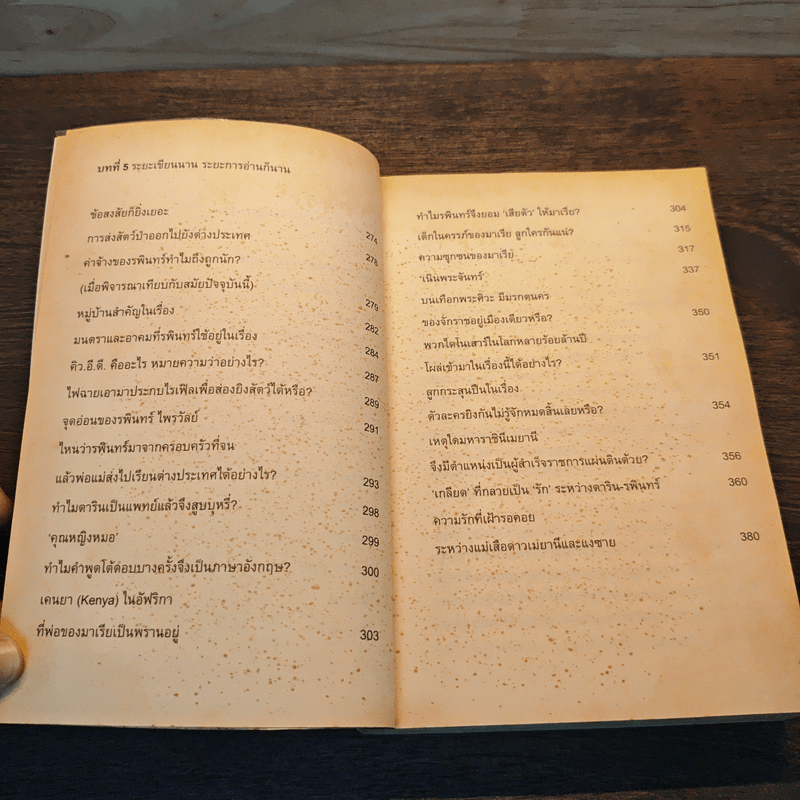 บทที่ 5 ระยะเขียนนาน ระยะการอ่านก็นาน
ข้อสงสัยก็ยิ่งเยอะ 274
การส่งสัตว์ป่าออกไปยังต่างประเทศ 278
ค่าจ้างของรพินทร์ทำไมถึงถูกนัก?
(เมื่อพิจารณาเทียบกับสมัยปัจจุบันนี้) 279
หมู่บ้านสำคัญในเรื่อง 282
มนตราและอาคมที่รพินทร์ใช้อยู่ในเรื่อง 284
คิว.อี.ดี. คืออะไร หมายความว่าอย่างไร? 287
ไฟฉายเอามาประกบไรเฟิลเพื่อส่องยิงสัตว์ได้หรือ? 289
จุดอ่อนของรพินทร์ ไพรวัลย์ 291
ไหนว่ารพินทร์มาจากครอบครัวที่จน
แล้วพ่อแม่ส่งไปเรียนต่างประเทศได้อย่างไร? 293
ทำไมดารินเป็นแพทย์แล้วจึงสูบบุหรี่? 298
'คุณหญิงหมอ' 299
ทำไมคำพูดโต้ตอบบางครั้งจึงเป็นภาษาอังกฤษ? 300
เคนยา (Kenya) ในอัฟริกา
ที่พ่อของมาเรียเป็นพรานอยู่ 303
ทำไมรพินทร์จึงยอม 'เสียตัว' ให้มาเรีย? 304
เด็กในครรภ์ของมาเรีย ลูกใครกันแน่? 315
ความซุกซนของมาเรีย 317
'เนินพระจันทร์' 337
บนเทือกพระศิวะ มีมรกตนคร
ของจักราชอยู่เมืองเดียวหรือ? 350
พวกไดโนเสาร์ในโลกหลายร้อยล้านปี
โผล่เข้ามาในเรื่องนี้ได้อย่างไร? 351
ลูกกระสุนปืนในเรื่อง
ตัวละครยิงกันไม่รู้จักหมดสิ้นเลยหรือ? 354
เหตุใดมหาราชินีเมยานี
จึงมีตำแหน่งเป็นผู้สำเร็จราชการแผ่นดินด้วย? 356
'เกลียด' ที่กลายเป็น 'รัก' ระหว่างดาริน-รพินทร์ 360
ความรักที่เฝ้ารอคอย
ระหว่างแม่เสือดาวเมยานีและแงซาย 380